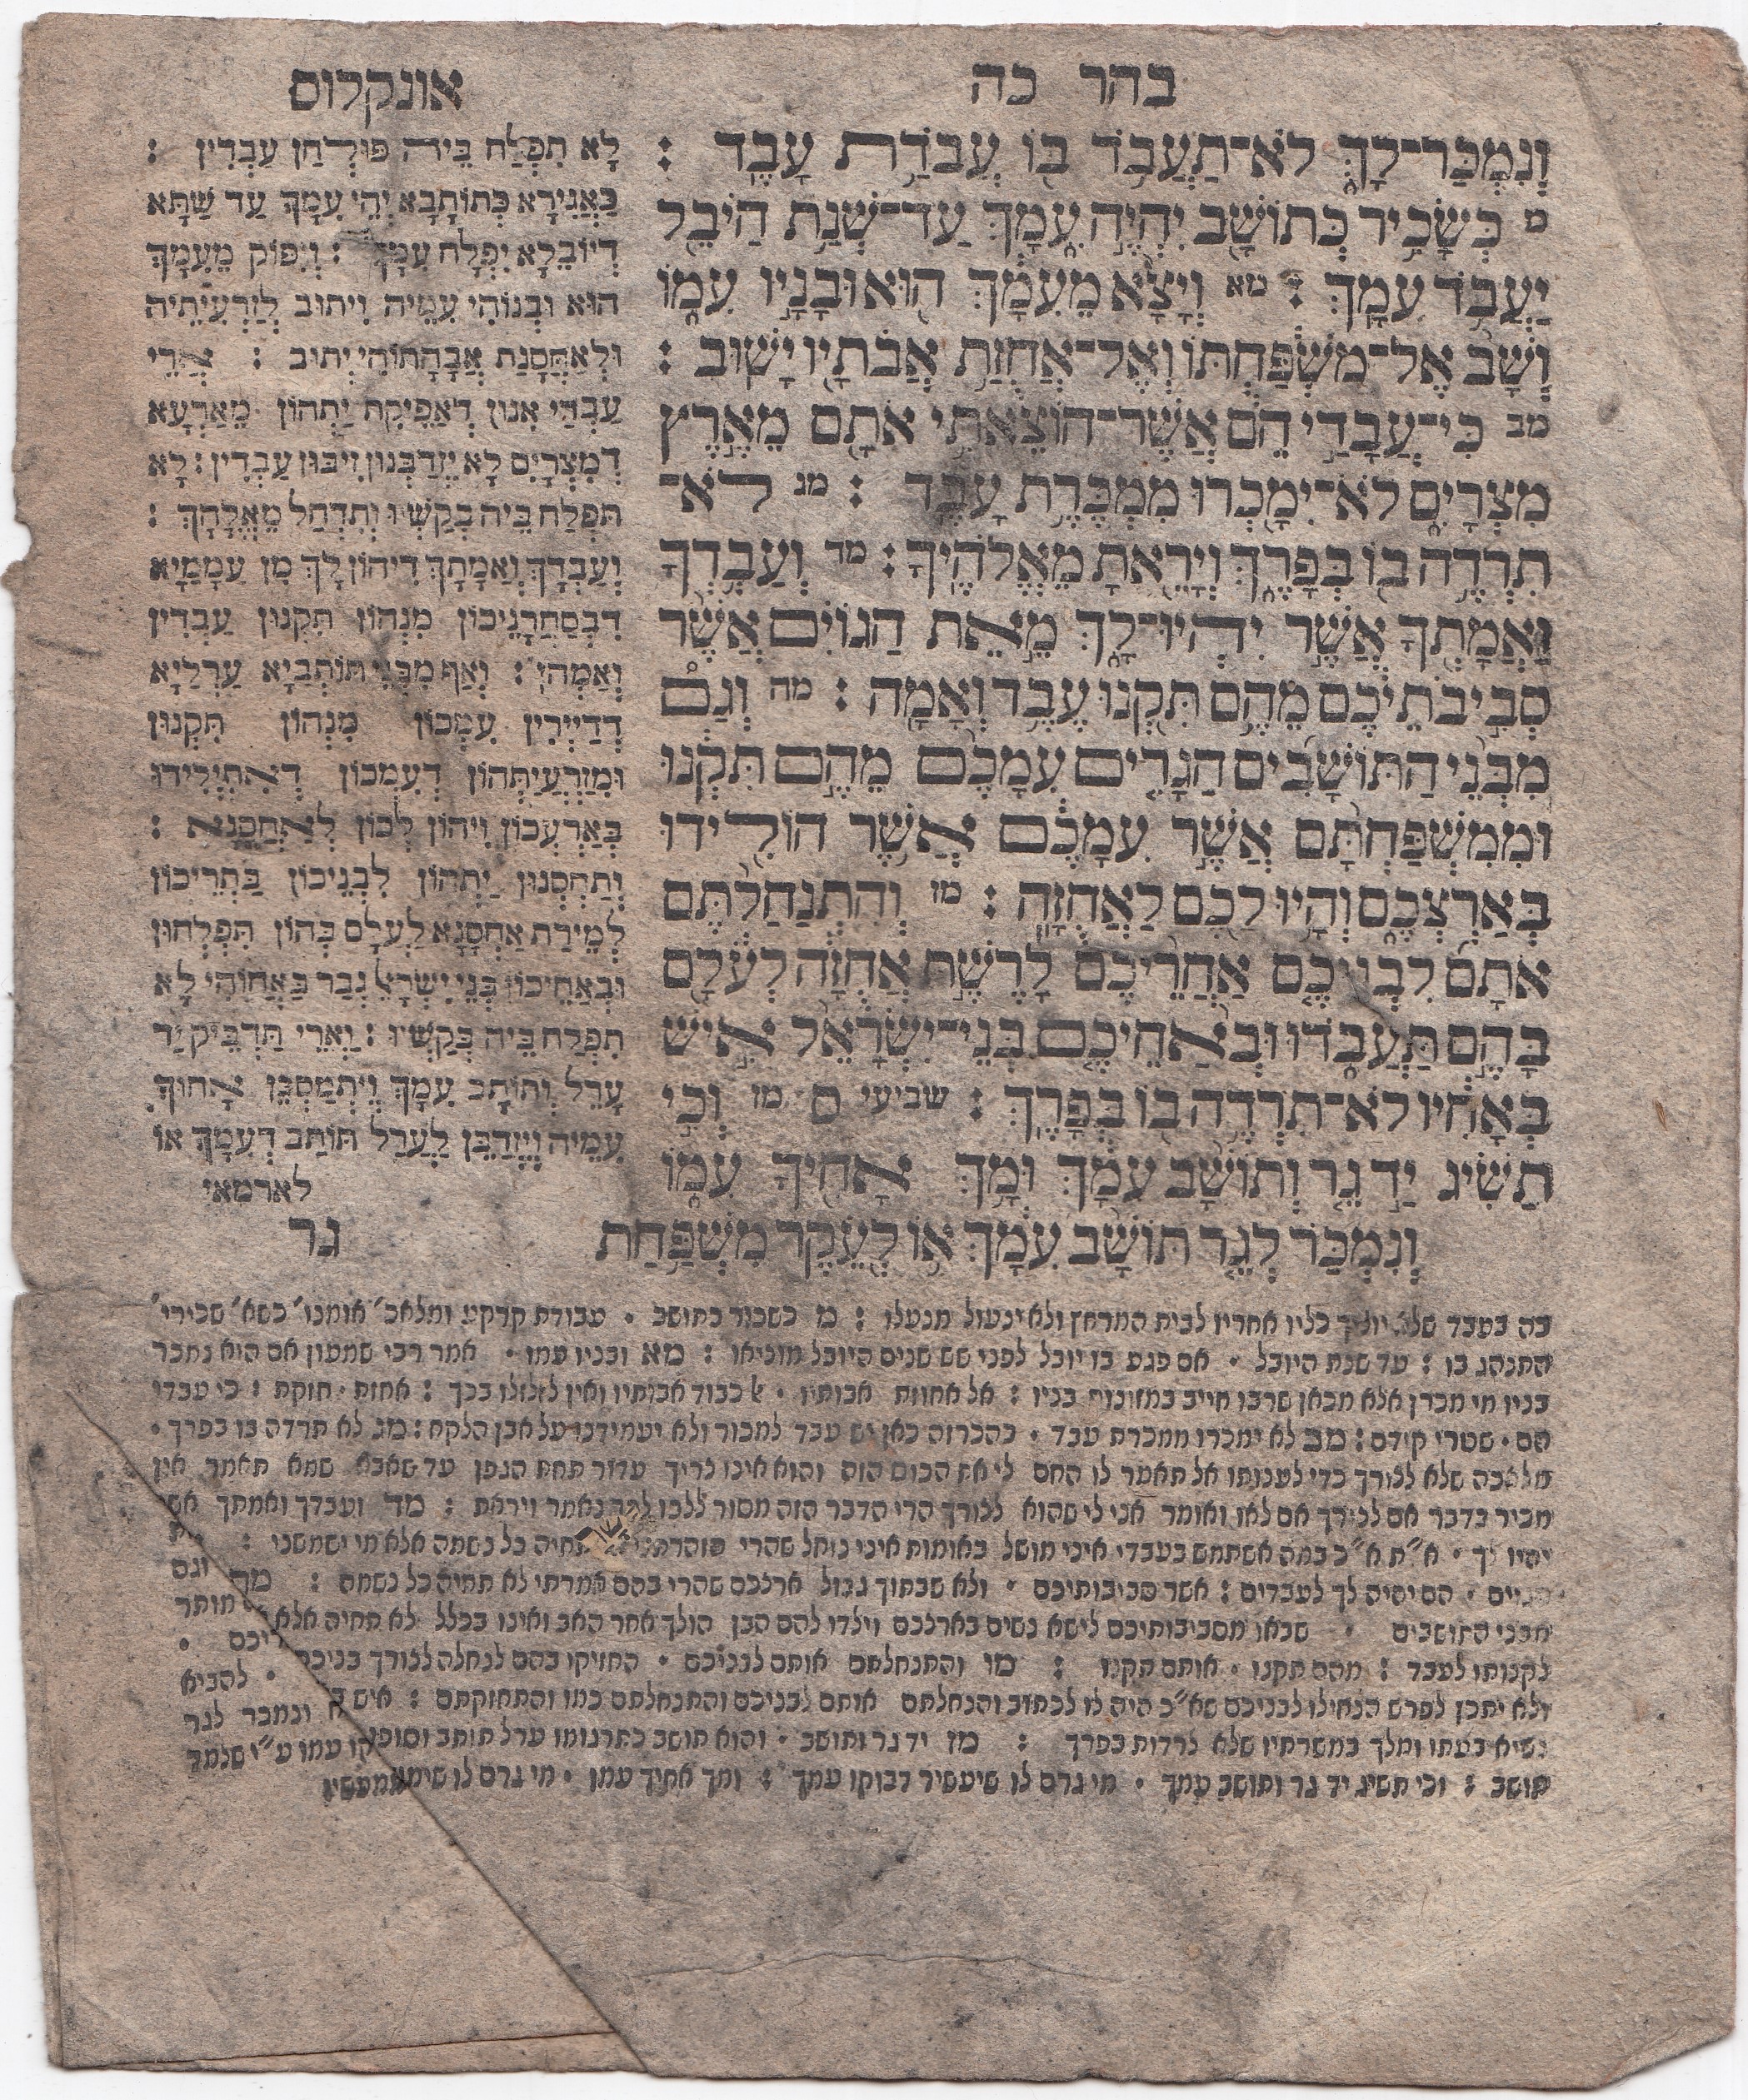 בהר כה
וְנִמְכַּר־לָךְ לֹא־תַעֲבֹד בּוֹ עֲבֹדַת עָבֶד :
מ כְּשָׂכִיר כְּתוֹשָׁב יִהְיֶה עִמָּךְ עַד־שְׁנַת הַיֹּבֵל
יַעֲבֹד עִמָּךְ : מא וְיָצָא מֵעִמָּךְ הוּא וּבָנָיו עִמּוֹ
וְשָׁב אֶל־מִשְׁפַּחְתּוֹ וְאֶל־אֲחֻזַּת אֲבֹתָיו יָשׁוּב :
מב כִּי־עֲבָדַי הֵם אֲשֶׁר־הוֹצֵאתִי אֹתָם מֵאֶרֶץ
מִצְרָיִם לֹא־יִמָּכְרוּ מִמְכֶּרֶת עָבֶד : מג לֹא־
תִרְדֶּה בוֹ בְּפָרֶךְ וְיָרֵאתָ מֵאֱלֹהֶיךָ : מד וְעַבְדְּךָ
וַאֲמָתְךָ אֲשֶׁר יִהְיוּ־לָךְ מֵאֵת הַגּוֹיִם אֲשֶׁר
סְבִיבֹתֵיכֶם מֵהֶם תִּקְנוּ עֶבֶד וְאָמָה : מה וְגַם
מִבְּנֵי הַתּוֹשָׁבִים הַגָּרִים עִמָּכֶם מֵהֶם תִּקְנוּ
וּמִמִּשְׁפַּחְתָּם אֲשֶׁר עִמָּכֶם אֲשֶׁר הוֹלִידוּ
בְּאַרְצְכֶם וְהָיוּ לָכֶם לַאֲחֻזָּה : מו וְהִתְנַחַלְתֶּם
אֹתָם לִבְנֵיכֶם אַחֲרֵיכֶם לָרֶשֶׁת אֲחֻזָּה לְעֹלָם
בָּהֶם תַּעֲבֹדוּ וּבְאַחֵיכֶם בְּנֵי־יִשְׂרָאֵל אִישׁ
בְּאָחִיו לֹא־תִרְדֶּה בוֹ בְּפָרֶךְ : שביעי ס מז וְכִי
תַשִּׂיג יַד גֵּר וְתוֹשָׁב עִמָּךְ וּמָךְ אָחִיךָ עִמּוֹ
וְנִמְכַּר לְגֵר תּוֹשָׁב עִמָּךְ אוֹ לְעֵקֶר מִשְׁפַּחַת
אונקלוס
לָא תִפְלַח בֵּיהּ פּוּלְחַן עַבְדִין :
כַּאֲגִירָא כְּתוֹתָבָא יְהֵי עִמָּךְ עַד שַׁתָּא
דְיוֹבֵלָא יִפְלַח עִמָּךְ : וְיִפּוֹק מֵעִמָּךְ
הוּא וּבְנוֹהִי עִמֵּיהּ וִיתוּב לְזַרְעִיתֵיהּ
וּלְאַחֲסָנַת אֲבָהָתוֹהִי יְתוּב : אֲרֵי
עַבְדַּי אִנּוּן דְּאַפֵּיקִת יַתְהוֹן מֵאַרְעָא
דְמִצְרָיִם לָא יִזְדַּבְּנוּן זִבּוּן עַבְדִין : לָא
תִפְלַח בֵּיהּ בְּקַשְׁיוּ וְתִדְחַל מֵאֱלָהָךְ :
וְעַבְדָּךְ וְאַמְתָךְ דִּיהוֹן לָךְ מִן עַמְמַיָּא
דִּבְסַחֲרָנֵיכוֹן מִנְּהוֹן תִּקְנוּן עַבְדִין
וְאַמְהָן : וְאַף מִבְּנֵי תּוֹתָבַיָּא עַרְלַיָּא
דְּדַיְירִין עִמְּכוֹן מִנְּהוֹן תִּקְנוּן
וּמִזַּרְעֲיַתְהוֹן דְּעִמְּכוֹן דְּאִתְיְלִידוּ
בְּאַרְעֲכוֹן וִיהוֹן לְכוֹן לְאַחֲסָנָא :
וְתַחְסְנוּן יַתְהוֹן לִבְנֵיכוֹן בַּתְרֵיכוֹן
לְמֵירַת אַחְסָנָא לְעָלַם בְּהוֹן תִּפְלְחוּן
וּבַאֲחֵיכוֹן בְּנֵי יִשְׂרָאֵל גְּבַר בַּאֲחוּהִי לָא
תִפְלַח בֵּיהּ בְּקַשְׁיוּ : וַאֲרֵי תַדְבֵּיק יַד
עָרֵל וְתוֹתָב עִמָּךְ וְיִתְמַסְכֵּן אָחוּךְ
עִמֵּיהּ וְיִזְדַּבֵּן לַעֲרַל תּוֹתַב דְּעִמָּךְ אוֹ
לארמאי
גר
בה בעבד שלא יוליך כליו אחריו לבית המרחץ ולא ינעול מנעלו : מ כשכיר כתושב • עבודת קרקע ומלאכ׳ אומנו׳ כשא׳ שכירי׳
התנהג בו : עד שנת היובל • אם פגע בו יובל לפני שש שנים היובל מוציאו : מא ובניו עמו • אמר רבי שמעון אם הוא נמכר
בניו מי מכרן אלא מכאן שרבו חייב במזונות בניו : אל אחוזת אבותיו • כבוד אבותיו ואין לזלזלו בכך : אחזת • חזקת : כי עבדי
הם • שטרי קודם : מב לא ימכרו ממכרת עבד • בהכרזה כאן יש עבד למכור ולא יעמידנו על אבן הלקח : מג לא תרדה בו בפרך •
מלאכה שלא לצורך כדי לענותו אל תאמר לו החם לי את הכוס הזה והוא אינו צריך עדור תחת הגפן עד שאבא שמא תאמר אין
מכיר בדבר אם לצורך אם לאו ואומר אני לו שהוא לצורך הרי הדבר הזה מסור ללב לכך נאמר ויראת : מד ועבדך ואמתך אשר
יהיו לך • א״ת א״כ במה אשתמש בעבדי איני מושל באומות איני נוחל שהרי תחיה כל נשמה אלא מי ישמשני :
הגוים • הם יהיו לך לעבדים : אשר סביבותיכם • ולא שבתוך גבול ארצכם שהרי בהם אמרתי לא תחיה כל נשמה : מה וגם
מבני התושבים • שבאו מסביבותיכם לישא נשים בארצכם וילדו להם הבן הולך אחר האב ואינו בכלל לא תחיה אלא מותר
לקנותו לעבד : מהם תקנו • אותם תקנו : מו והתנחלתם אותם לבניכם • החזיקו בהם לנחלה לצורך בניכם
ולא יתכן לפרש הנחילו לבניכם שא״כ היה לו לכתוב והנחלתם אותם לבניכם והתנחלתם כמו והתחזקתם : איש • להביא
נשיא בעמו ומלך במשרתיו שלא לרדות בפרך : מז יד גר ותושב • והוא תושב כתרגומו ערל תותב וסופו ונמכר לגר
תושב : וכי תשיג יד גר ותושב עמך • מי גרם לו שיעשיר דבוקו עמך : ומך אחיך עמו • מי גרם לו שימוך עמו ע״י שלמד ממעשיו